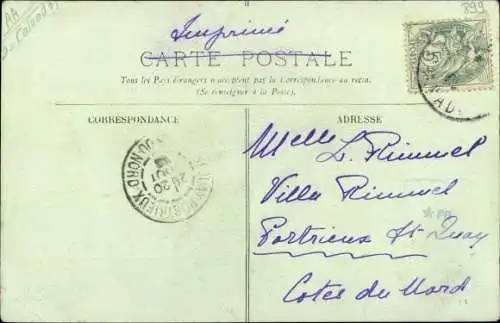 899
AA
Imprimé
CARTE POSTALE
Tous les Pays étrangers n'acceptent pas la Correspondance au recto.
(Se renseigner à la Poste).
CORRESPONDANCE
ADRESSE
Melle L. Rimmel
Villa Rimmel
Portrieux St Quay
Cotes du Nord
PORTRIEUX
DU NORD
20
AOUT